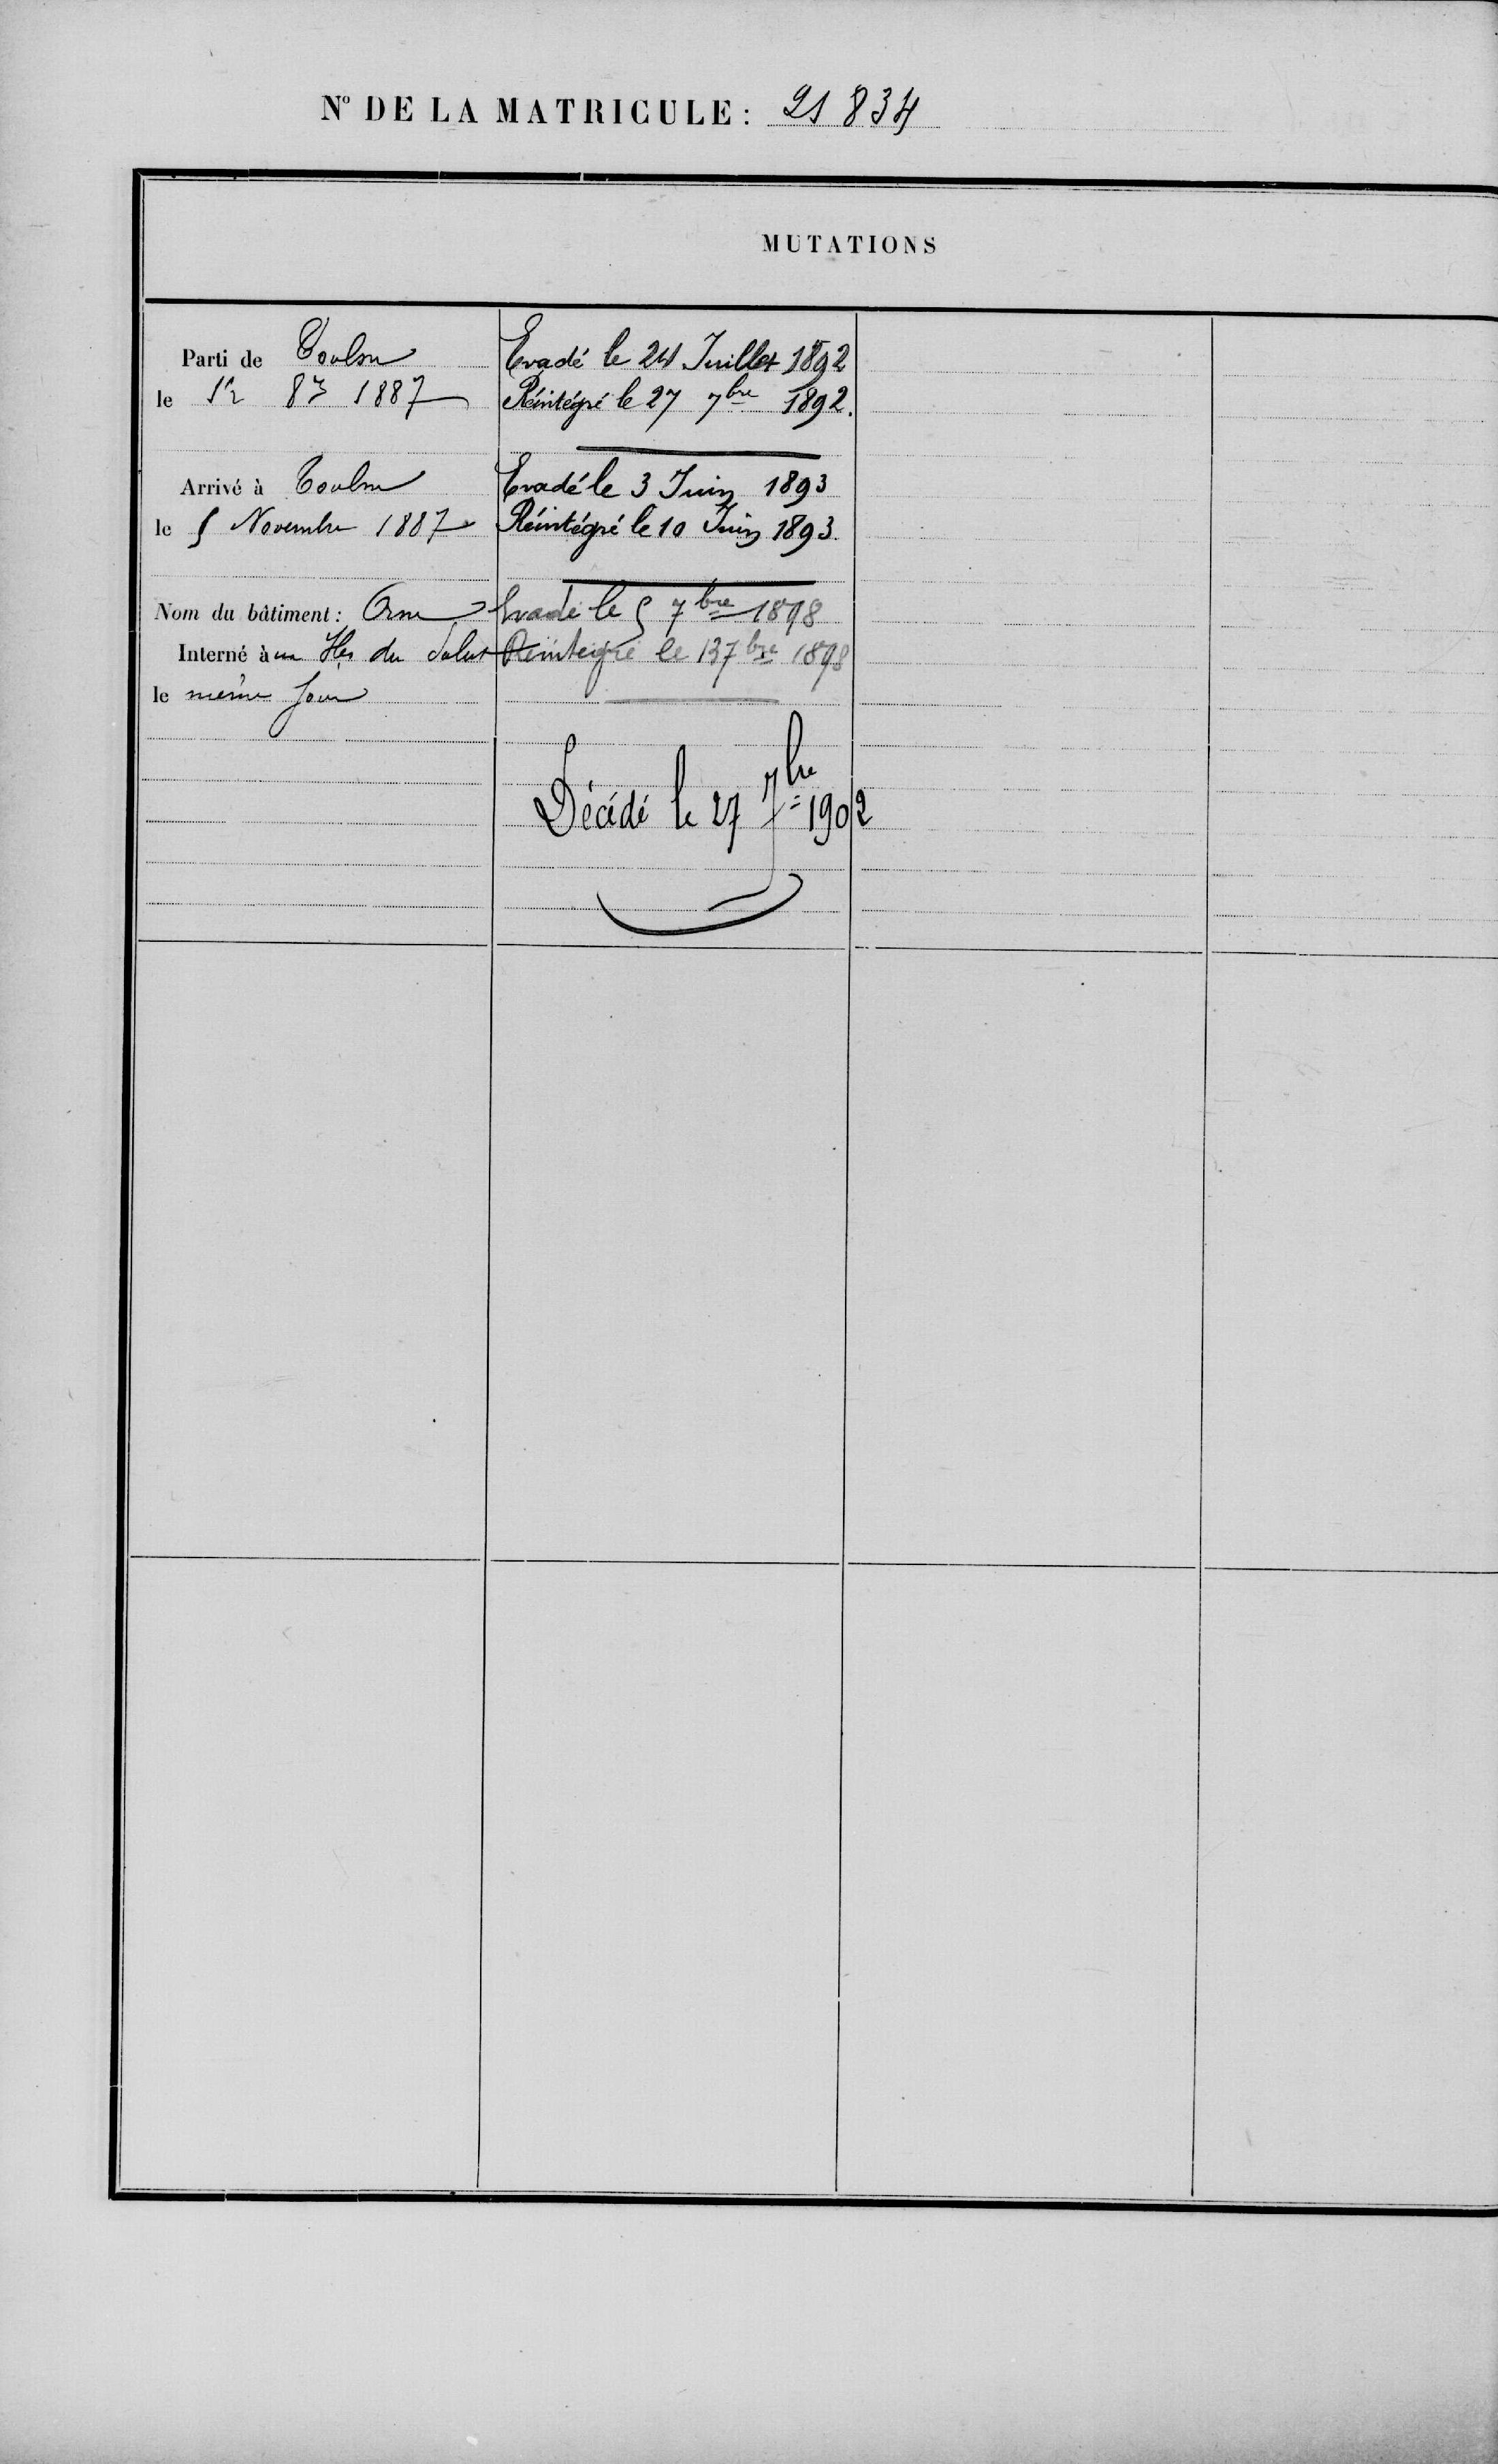 N° DE LA MATRICULE: 21834
MUTATIONS
Parti de Toulon
le 8re 1887
Arrivé à Toulon
le 5 Novembre 1887
Nom du bâtiment: Orne
Interné aux Iles du Salut
le même jour
Evadé le 24 Juillet 1892
Réintégré le 27 7bre 1892.
Evadé le 3 Juin 1893
Réintégré le 10 Juin 1893.
Evadé le 5 7bre 1898
Réintégré le 13 7bre 1898
Décédé le 27 7bre 1902